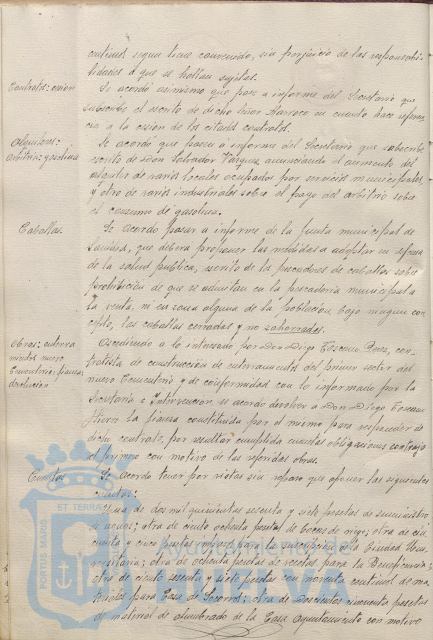 continuó según tiene convenido, sin perjuicio de las responsabi-
lidades á que se hallan sujetas.
Contratos: cesión
Se acordó asimismo que pase a informe del Secretario que
suscribe el escrito de dicho Señor en cuanto hace referen-
cia a la cesión de los citados contratos.
Alquileres:
arbitrio: gasolina
Se acordó que pasen á informe del Secretario que suscribe
escrito de Don Salvador Vázquez anunciando el aumento del
alquiler de varios locales ocupados por servicios municipales,
y otro de varios industriales sobre el pago del arbitrio sobre
el consumo de gasolina.
Caballas.
Se acordó pasar a informe de la Junta municipal de
Sanidad, que deberá proponer las medidas a adoptar en defensa
de la salud pública, escrito de los pescadores de caballas sobre
prohibición de que se admitan en la pescadería municipal a
la venta, ni en zona alguna de la población, bajo ningún con-
cepto, las caballas cerradas y no
Obras: enterra
mientos nuevo
Cementerio: fianza,
devolución
Accediendo a lo interesado por Don Diego Toscano Pérez, con-
tratista de construcción de enterramientos del primer sector del
nuevo Cementerio y de conformidad con lo informado por la
Secretaría e Intervención, se acordó devolver a Don Diego Toscano
Pérez la fianza constituida por el mismo para responder de
dicho contrato, por resultar cumplidas cuantas obligaciones contrajo
el primero con motivo de las referidas obras.
Cuentas
Se acordó tener por vistas sin reparo que oponer las siguientes
cuentas:
Una de dos mil quinientas sesenta y siete pesetas de suministro
de aguas; otra de ciento ochenta pesetas de bocas de riego; otra de cin-
cuenta y cinco pesetas por la suscripción a la Ciudad Uni-
versitaria; otra de ochenta pesetas de recetas para la Beneficencia;
otra de ciento sesenta y siete pesetas con noventa céntimos de ma-
teriales para Casa de Socorro; otra de doscientas cincuenta pesetas
de material de alumbrado de la Casa Ayuntamiento con motivo
PORTUS MARIS
ET TERRAE
Ayuntamiento de